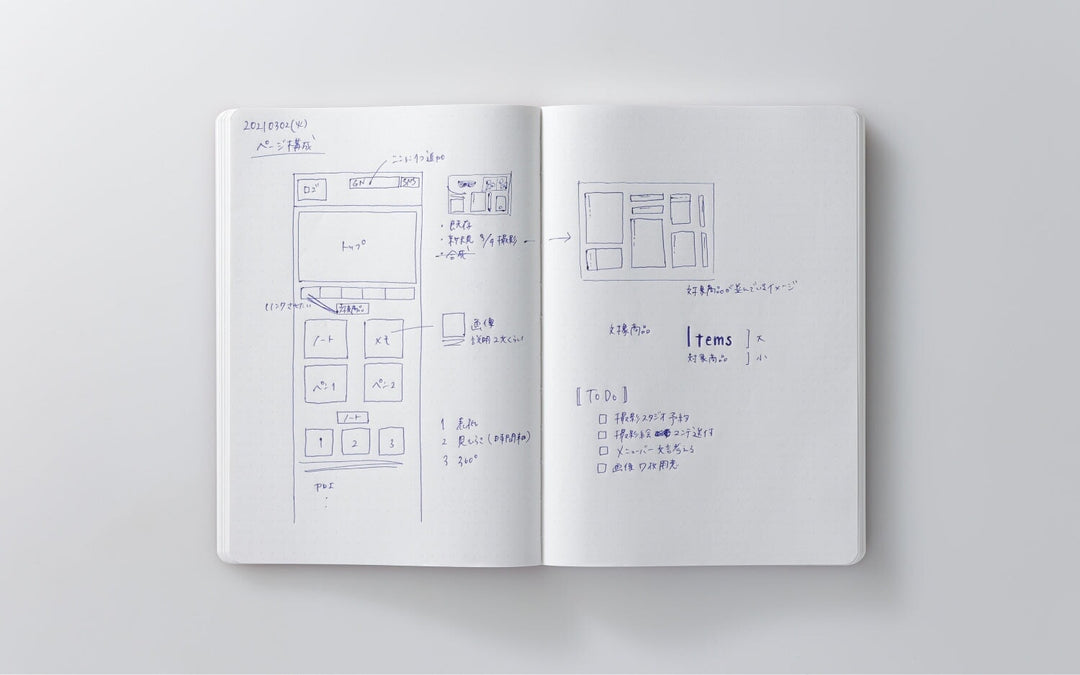 20210302(火)
ページ構成
ここに1つ追加
ロゴ
GN
SNS
トップ
・既存
・新規 3/9撮影
・合成
リンクさせたい
対象商品
ノート
メモ
画像
説明2文くらい
ペン1
ペン2
ノート
1
2
3
1 表紙
2 見ひらき
3 360°
対象商品が並んでいるイメージ
対象商品
Items 大
対象商品 小
[ToDo]
□ 撮影スタジオ予約
□ 撮影絵コンテ送付
□ メニューバー文言考える
□ 画像7枚用意